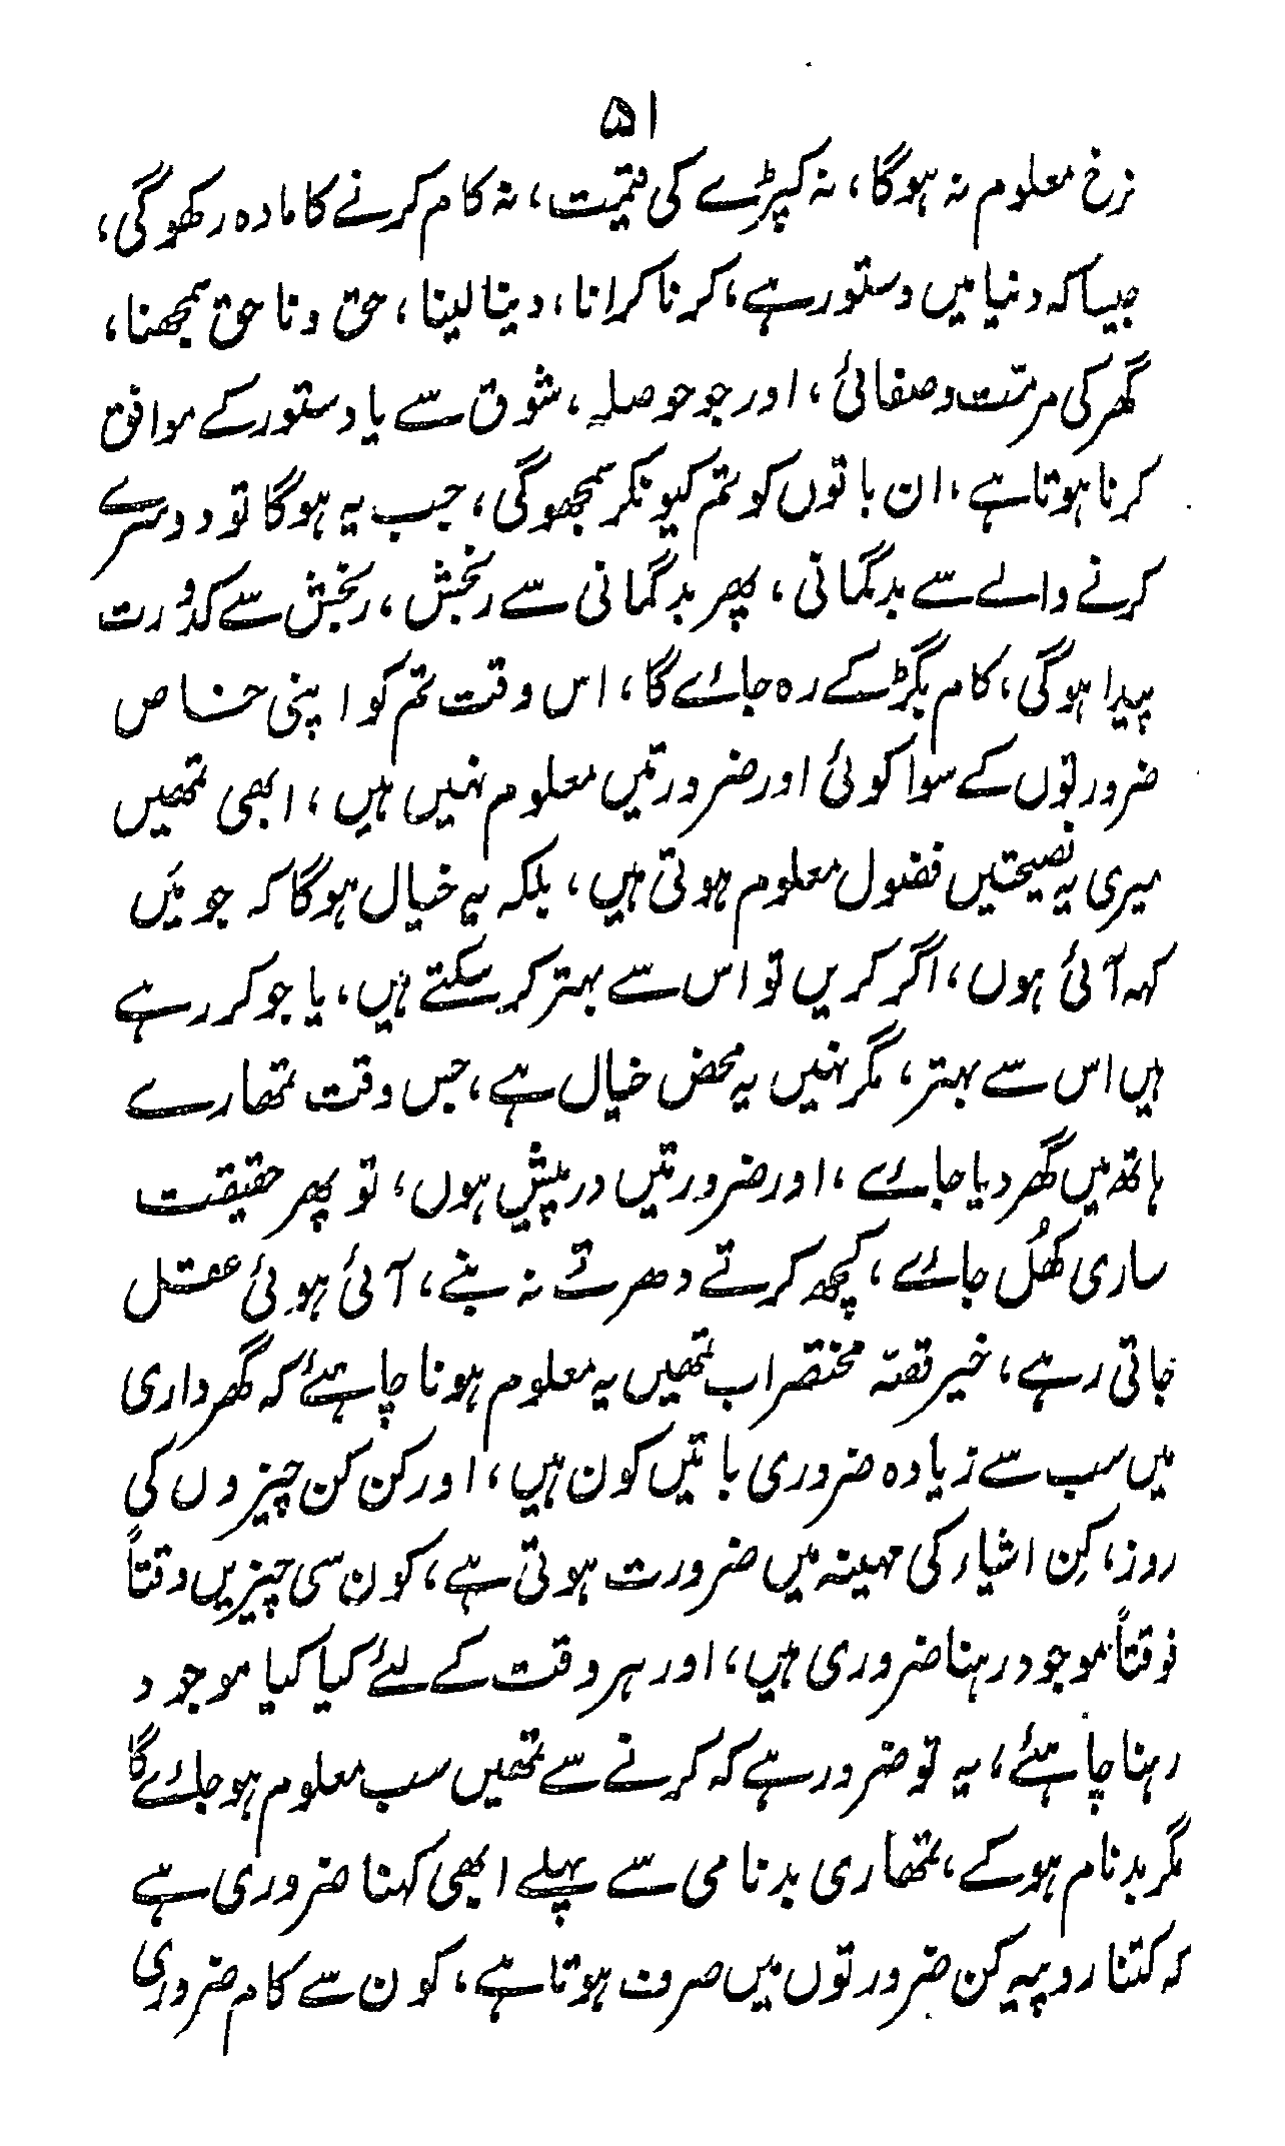 ۵۱
نرخ معلوم نہ ہوگا، نہ کپڑے کی قیمت، نہ کام کرنے کا مادہ رکھوگی،
جیسا کہ دنیا میں دستور ہے، کرنا کرانا، دینا لینا، حق و ناحق سمجھنا،
گھر کی مرمّت و صفائی، اور جو حوصلہ، شوق سے یا دستور کے موافق
کرنا ہوتا ہے، ان باتوں کو تم کیونکر سمجھوگی، جب یہ ہوگا تو دوسرے
کرنے والے سے بدگمانی، پھر بدگمانی سے رنجش، رنجش سے کدُورت
پیدا ہوگی، کام بگڑ کے رہ جائے گا، اس وقت تم کو اپنی خاص
ضرورتوں کے سوا کوئی اور ضرورتیں معلوم نہیں ہیں، ابھی تمھیں
میری یہ نصیحتیں فضول معلوم ہوتی ہیں، بلکہ یہ خیال ہوگا کہ جو مَیں
کہہ آئی ہوں، اگر کریں تو اس سے بہتر کر سکتے ہیں، یا جو کر رہے
ہیں اس سے بہتر، مگر نہیں یہ محض خیال ہے، جس وقت تمھارے
ہاتھ میں گھر دیا جائے، اور ضرورتیں درپیش ہوں، تو پھر حقیقت
ساری کھُل جائے، کچھ کرتے دھرتے نہ بنے، آئی ہوئی عقل
جاتی رہے، خیر قصّہ مختصر اب تمھیں یہ معلوم ہونا چاہئے کہ گھرداری
میں سب سے زیادہ ضروری باتیں کون ہیں، اور کن کن چیزوں کی
روز، کِن اشیاء کی مہینہ میں ضرورت ہوتی ہے، کون سی چیزیں وقتاً
فوقتاً موجود رہنا ضروری ہیں، اور ہر وقت کے لئے کیا کیا موجود
رہنا چاہئے، یہ تو ضرور ہے کہ کرنے سے تمھیں سب معلوم ہوجائے گا
مگر بدنام ہوکے، تمھاری بدنامی سے پہلے ابھی کہنا ضروری ہے
کہ کتنا روپیہ کن ضرورتوں میں صرف ہوتا ہے، کون سے کام ضروری